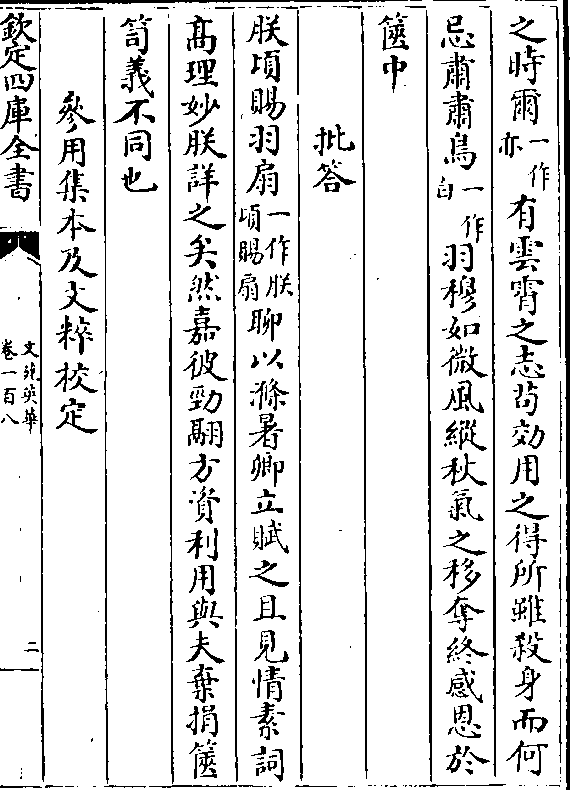 之時爾一作亦有雲霄之志茍効用之得所雖殺身而何
忌肅肅鳥一作白羽穆如微風縱秋氣之移奪終感恩於
篋中
批答
朕頃賜羽扇一作朕頃賜扇聊以滌暑卿立賦之且見情素詞
高理妙朕詳之矣然嘉彼勁翮方資利用與夫棄捐篋
笥義不同也
參用集本及文粹校定
欽定四庫全書
文苑英華
卷一百八
二